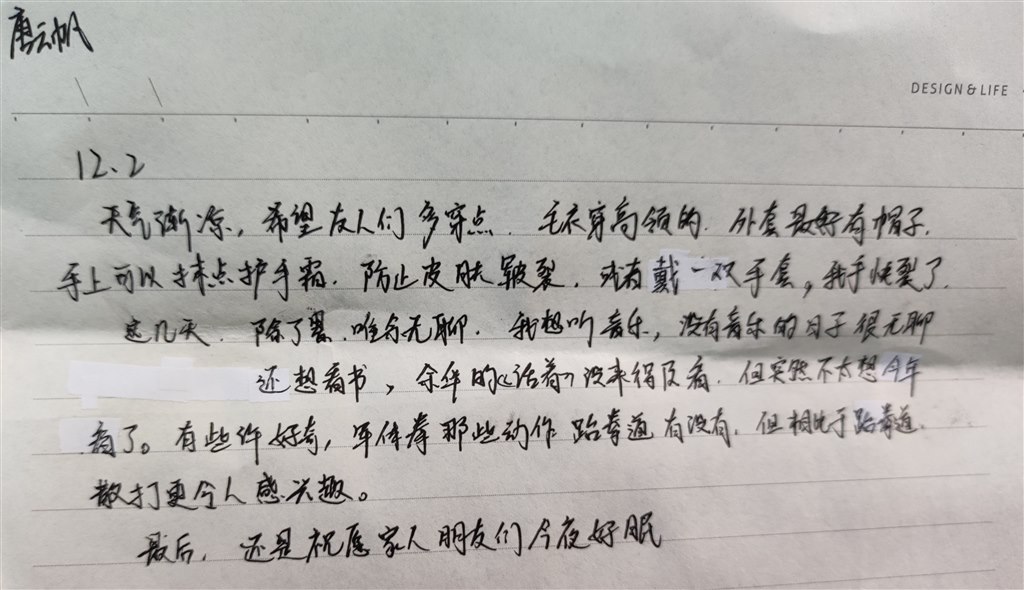 唐云帆
DESIGN & LIFE
12.2
天气渐凉,希望友人们多穿点.毛衣穿高领的.外套最好有帽子.
手上可以抹点护手霜.防止皮肤皲裂.没有戴一双手套,我手快裂了.
这几天.除了累.唯余无聊.我想听音乐,没有音乐的日子很无聊
还想看书,余华的《活着》没来得及看.但突然不太想今年
看了。有些许好奇,军体拳那些动作跆拳道有没有.但相比于跆拳道.
散打更令人感兴趣。
最后.还是祝愿家人朋友们今夜好眠